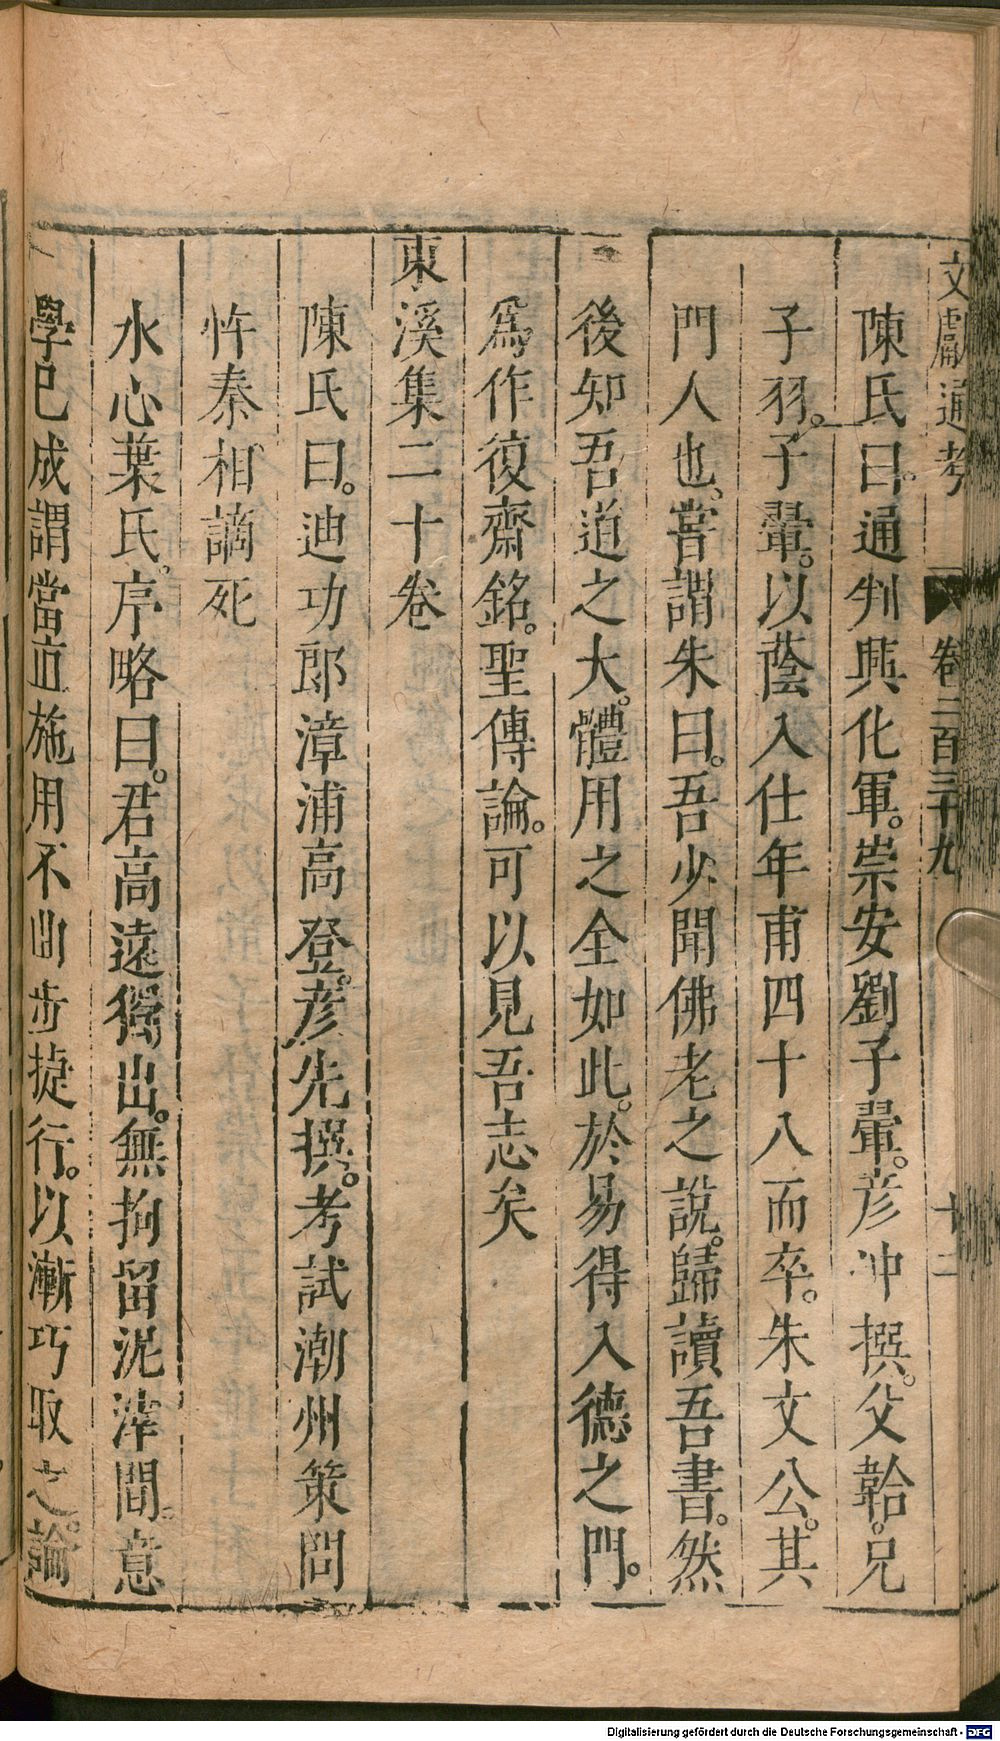 文獻通考 卷二百三十九 十二
陳氏曰。通判興化軍。崇安劉子翬。彦冲撰。父韐。兄
子羽。子翬。以蔭入仕年甫四十八而卒。朱文公。其
門人也、嘗謂朱曰。吾少聞佛老之說。歸讀吾書。然
後知吾道之大。體用之全如此。於易得入德之門。
爲作復齋銘。聖傳論。可以見吾志矣
東溪集二十卷
陳氏曰。迪功郎漳浦高登。彦先撰。考試潮州策問
忤秦相謫死
水心葉氏。序略曰。君高遠獨出。無拘留泥滓間。意
學已成謂當直施用不曲步捷行。以漸巧取之。論
Digitalisierung gefördert durch die Deutsche Forschungsgemeinschaft - DFG